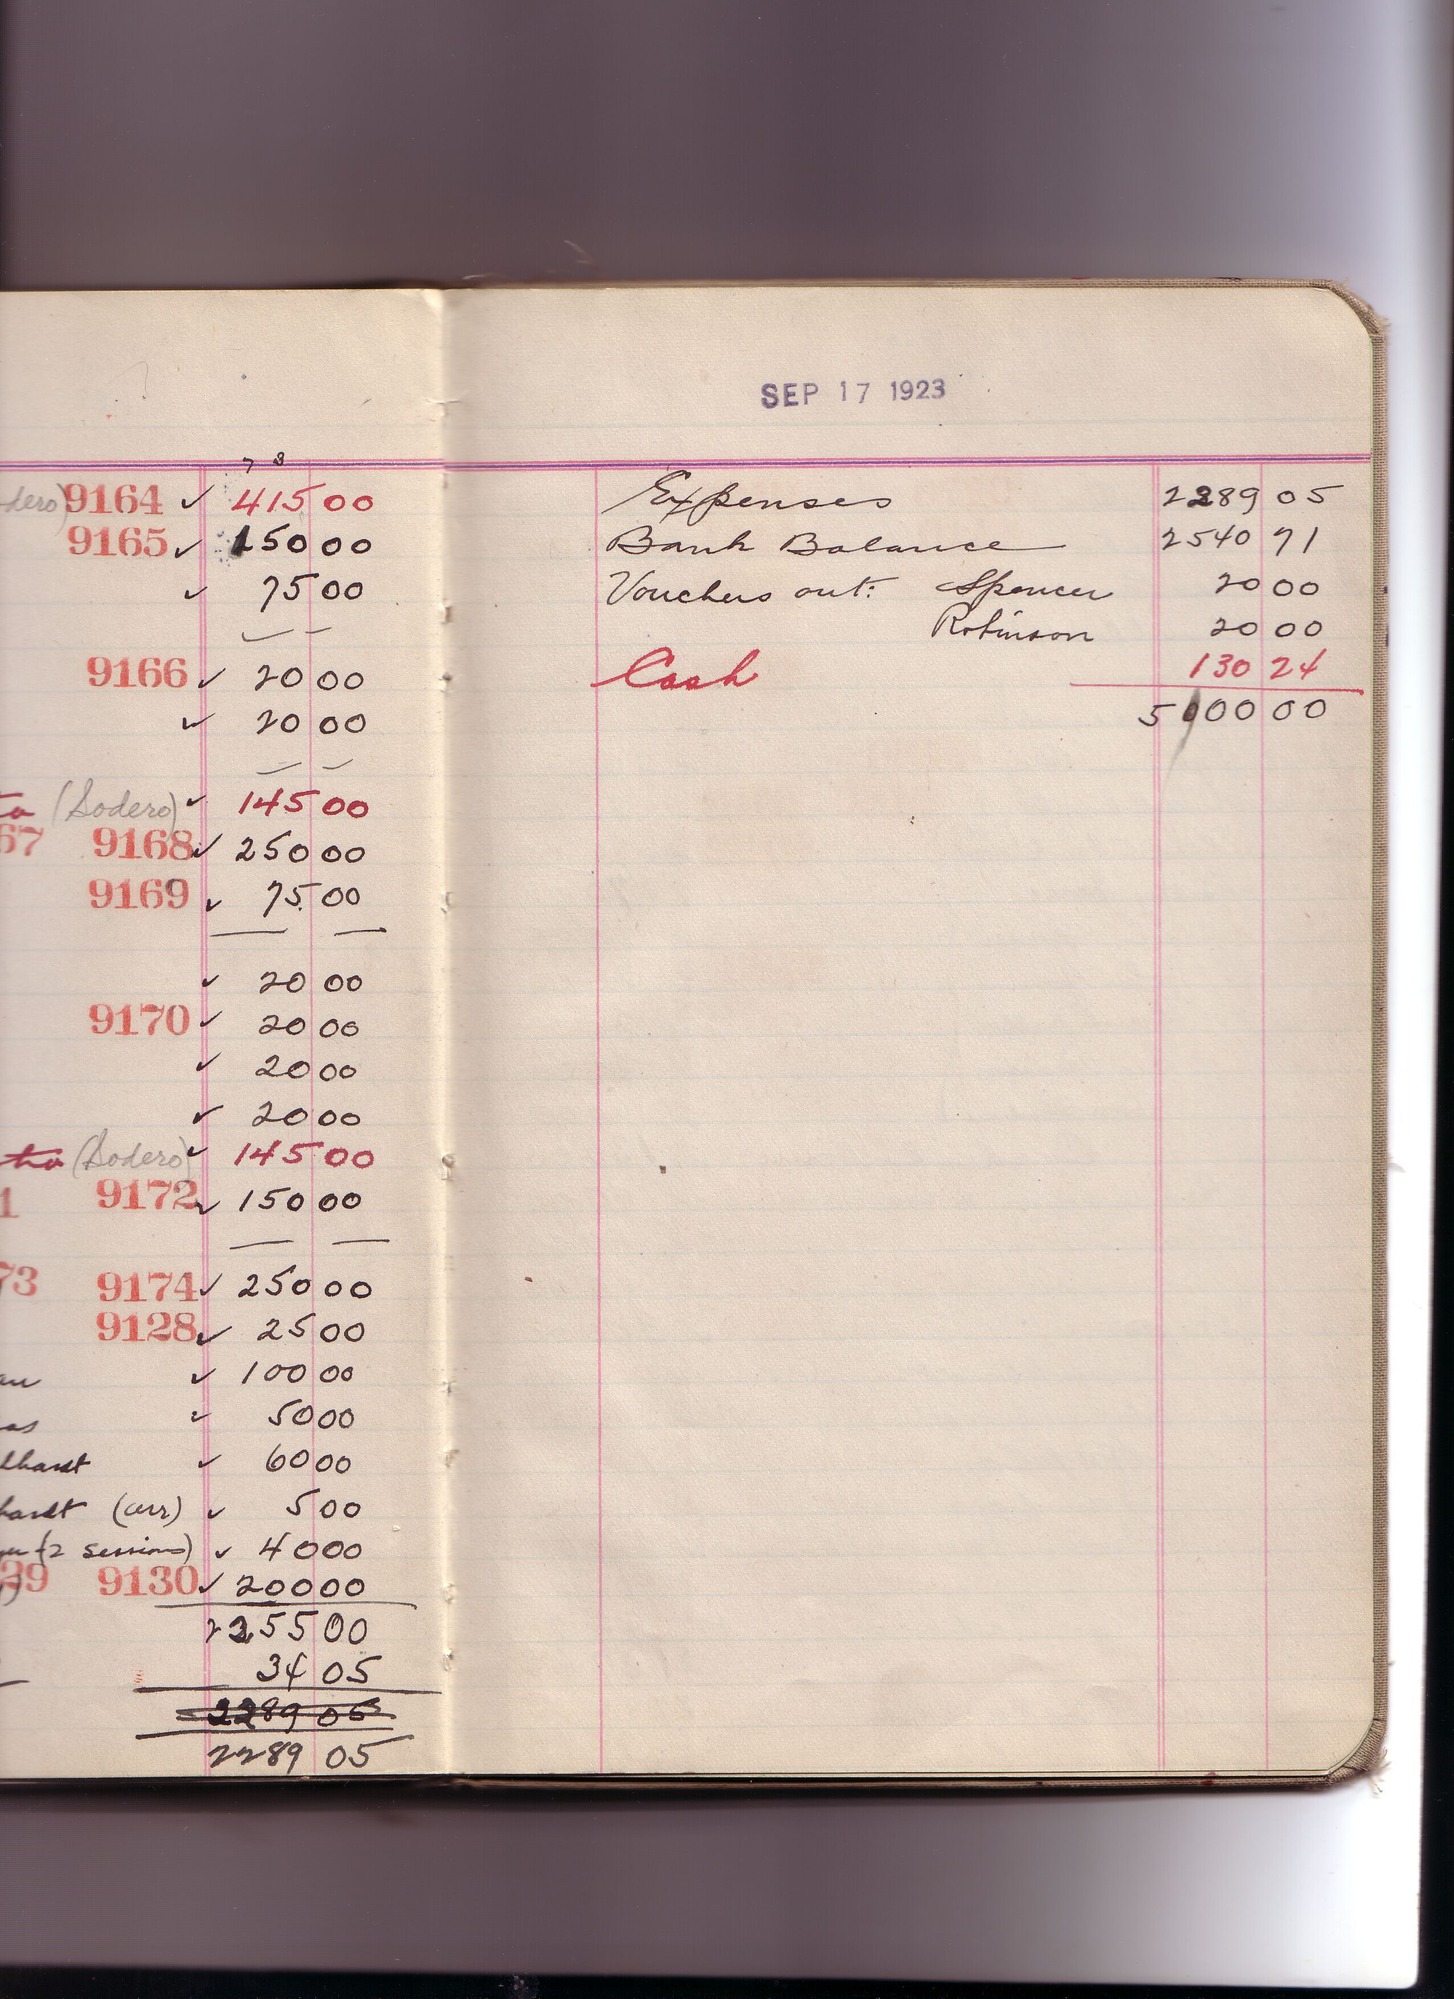 7 8
dero) 9164 ✓ 415 00
9165 ✓ 150 00
✓ 75 00
9166 ✓ 20 00
✓ 20 00
(Sodero) ✓ 145 00
67 9168 ✓ 250 00
9169 ✓ 75 00
✓ 20 00
9170 ✓ 20 00
✓ 20 00
✓ 20 00
(Sodero) ✓ 145 00
1 9172 ✓ 150 00
73 9174 ✓ 250 00
9128 ✓ 25 00
✓ 100 00
✓ 50 00
lhardt ✓ 60 00
hardt (arr) ✓ 5 00
(2 sessions) ✓ 40 00
29 9130 ✓ 200 00
2255 00
34 05
2289 05
2289 05
SEP 17 1923
Expenses 2289 05
Bank Balance 2540 71
Vouchers out: Spencer 20 00
Robinson 20 00
Cash 130 24
5000 00